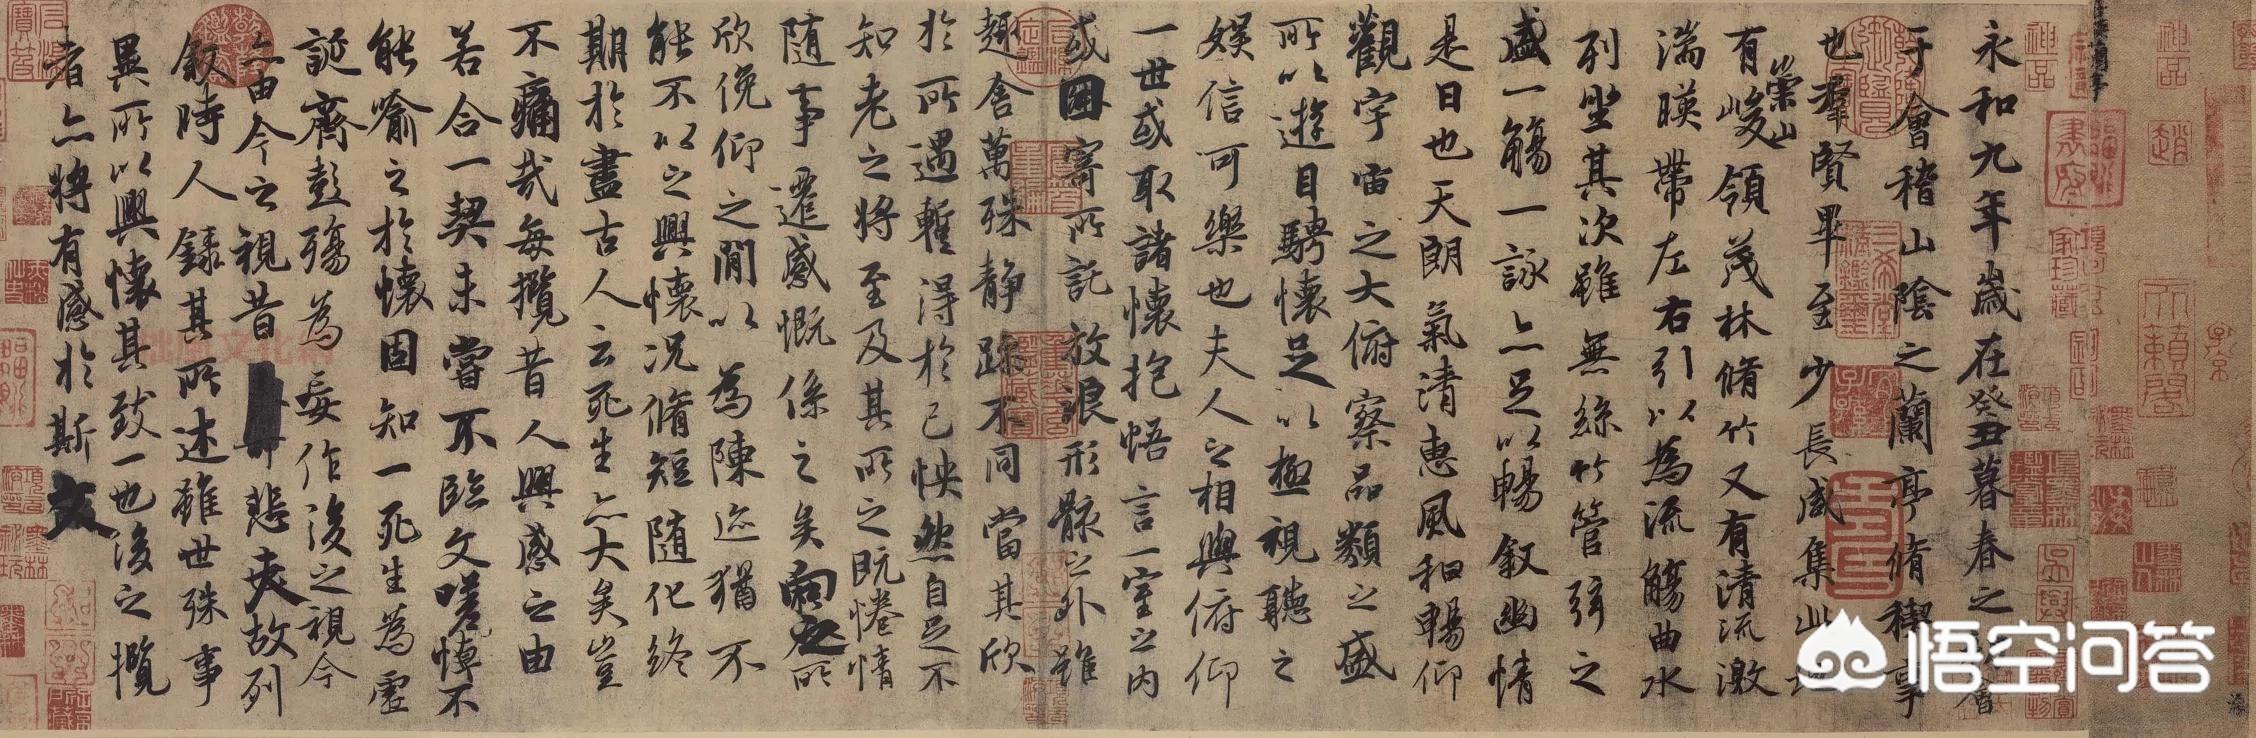 永和九年歲在癸丑暮春之初會
于會稽山陰之蘭亭脩稧事
也羣賢畢至少長咸集此地
有崇山峻領茂林脩竹又有清流激
湍暎帶左右引以為流觴曲水
列坐其次雖無絲竹管弦之
盛一觴一詠亦足以暢敘幽情
是日也天朗氣清惠風和暢仰
觀宇宙之大俯察品類之盛
所以遊目騁懷足以極視聽之
娛信可樂也夫人之相與俯仰
一世或取諸懷抱悟言一室之內
或因寄所託放浪形骸之外雖
趣舍萬殊静躁不同當其欣
於所遇蹔得於己怏然自足不
知老之將至及其所之既惓情
隨事遷感慨係之矣向之所
欣俛仰之閒以為陳迹猶不
能不以之興懷況脩短隨化終
期於盡古人云死生亦大矣豈
不痛哉每攬昔人興感之由
若合一契未嘗不臨文嗟悼不
能喻之於懷固知一死生為虛
誕齊彭殤為妄作後之視今
亦由今之視昔悲夫故列
敘時人錄其所述雖世殊事
異所以興懷其致一也後之攬
者亦將有感於斯文
神品
悟空问答